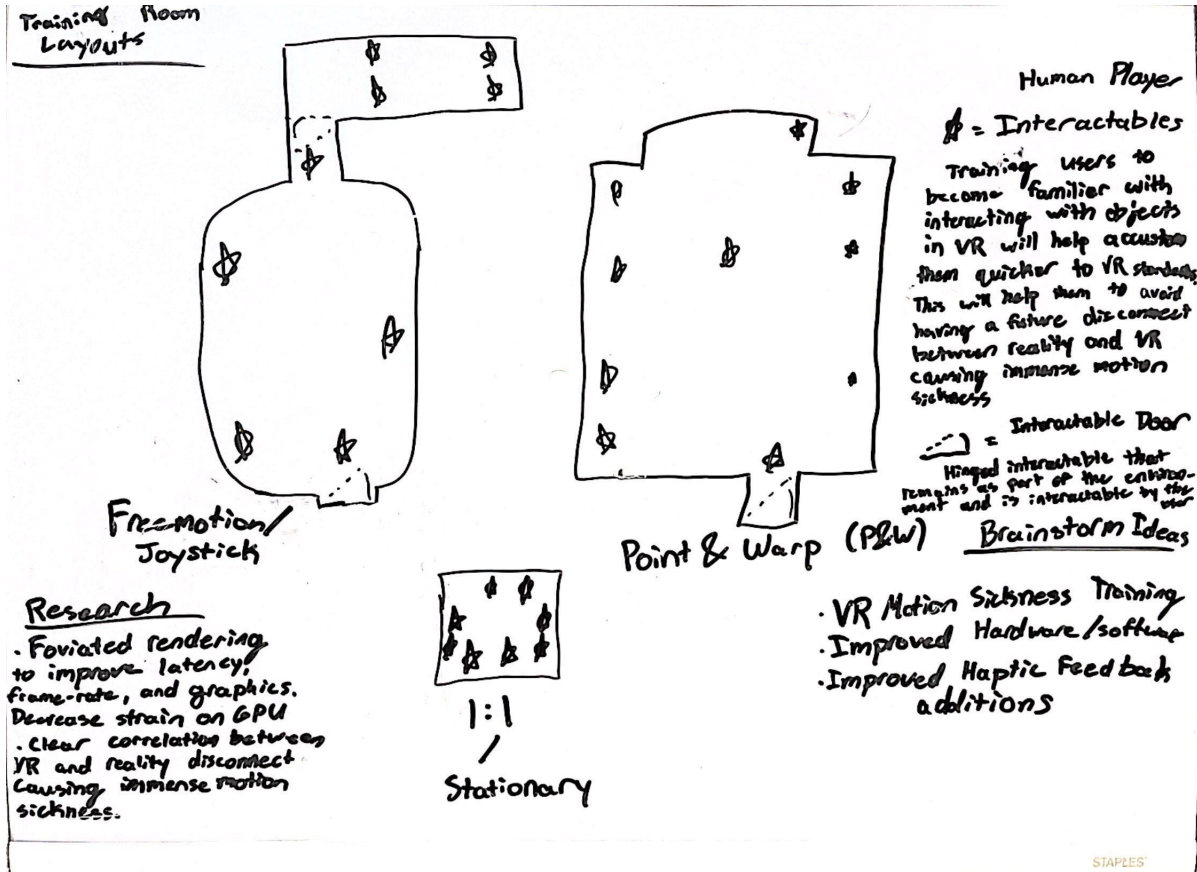 Training Room
Layouts
Freemotion/
Joystick
Point & Warp (P&W)
1:1
/
Stationary
Human Player
= Interactables
Training users to
become familiar with
interacting with objects
in VR will help accustom
them quicker to VR standards.
This will help them to avoid
having a future disconnect
between reality and VR
causing immense motion
sickness
= Interactable Door
Hinged interactable that
remains as part of the environ-
ment and is interactable by the
user
Brainstorm Ideas
· VR Motion Sickness Training
· Improved Hardware/software
· Improved Haptic Feedback
additions
Research
· Foviated rendering
to improve latency,
frame-rate, and graphics.
Decrease strain on GPU
· Clear correlation between
VR and reality disconnect
causing immense motion
sickness.
STAPLES